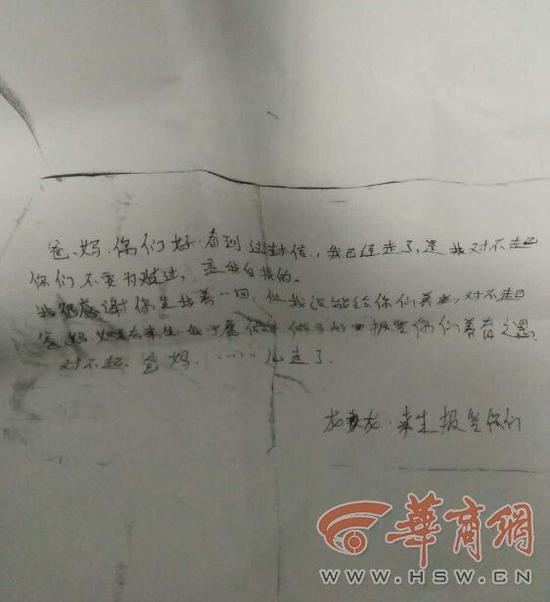 爸.妈.你们好.看到这封信,我已经走了,是我对不起
你们不要为难过,是我自找的.
我很感谢你生我养一回,但我没能给你们养老,对不起
爸妈 如果有来生我 报答你们养育之恩
对不起.爸妈.……儿走了.
来生报答你们
華商網
WWW.HSW.CN